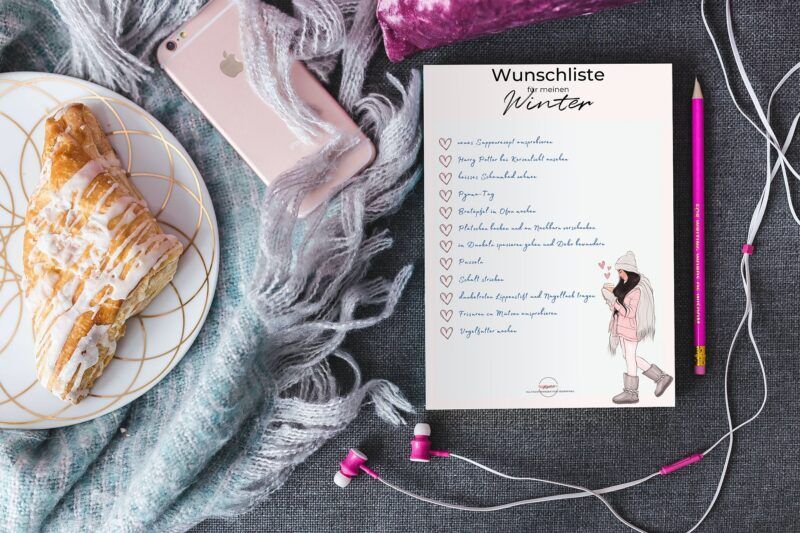 Wunschliste
für meinen
Winter
neues Suppenrezept ausprobieren
Harry Potter bei Kerzenlicht ansehen
heisses Schaumbad nehmen
Pyjama-Tag
Bratapfel im Ofen machen
Plätzchen backen und an Nachbarn verschenken
im Dunkeln spazieren gehen und Deko bewundern
Puzzeln
Schall stricken
dunkelroten Lippenstift und Nagellack tragen
Frisuren zu Mützen ausprobieren
Vogelfutter machen